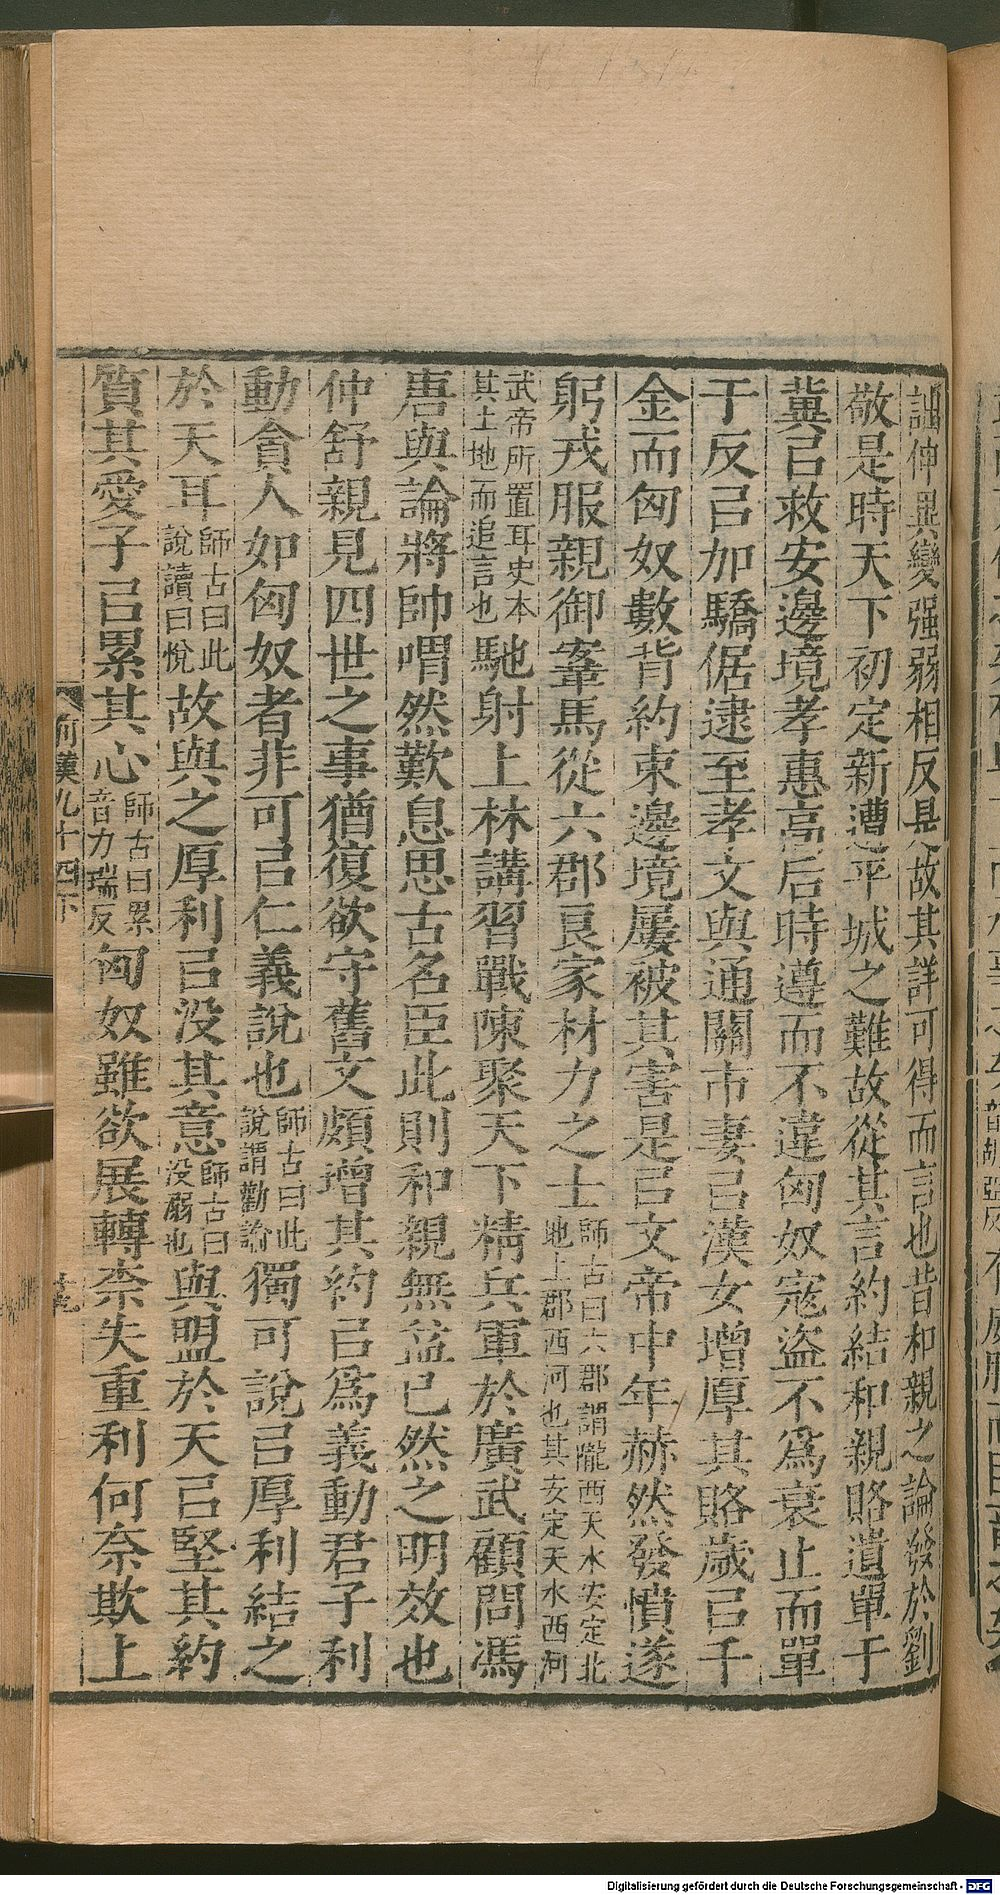 詘伸異變强弱相反是故其詳可得而言也昔和親之論發於劉
敬是時天下初定新遭平城之難故從其言約結和親賂遺單于
冀㠯救安邊境孝惠高后時遵而不違匈奴寇盜不爲衰止而單
于反㠯加驕倨逮至孝文與通關市妻㠯漢女增厚其賂歲㠯千
金而匈奴數背約束邊境屢被其害是㠯文帝中年赫然發憤遂
躬戎服親御鞌馬從六郡良家材力之士師古曰六郡謂隴西天水安定北地上郡西河也其安定天水西河
武帝所置耳史本其土地而追言也馳射上林講習戰陳聚天下精兵軍於廣武顧問馮
唐與論將帥喟然歎息思古名臣此則和親無益已然之明效也
仲舒親見四世之事猶復欲守舊文頗增其約㠯爲義動君子利
動貪人如匈奴者非可㠯仁義說也師古曰此說謂勸諭獨可說㠯厚利結之
於天耳師古曰此說讀曰悅故與之厚利㠯没其意師古曰没溺也與盟於天㠯堅其約
質其愛子㠯累其心師古曰累音力瑞反匈奴雖欲展轉柰失重利何奈欺上
前漢九十四下
Digitalisierung gefördert durch die Deutsche Forschungsgemeinschaft - DFG